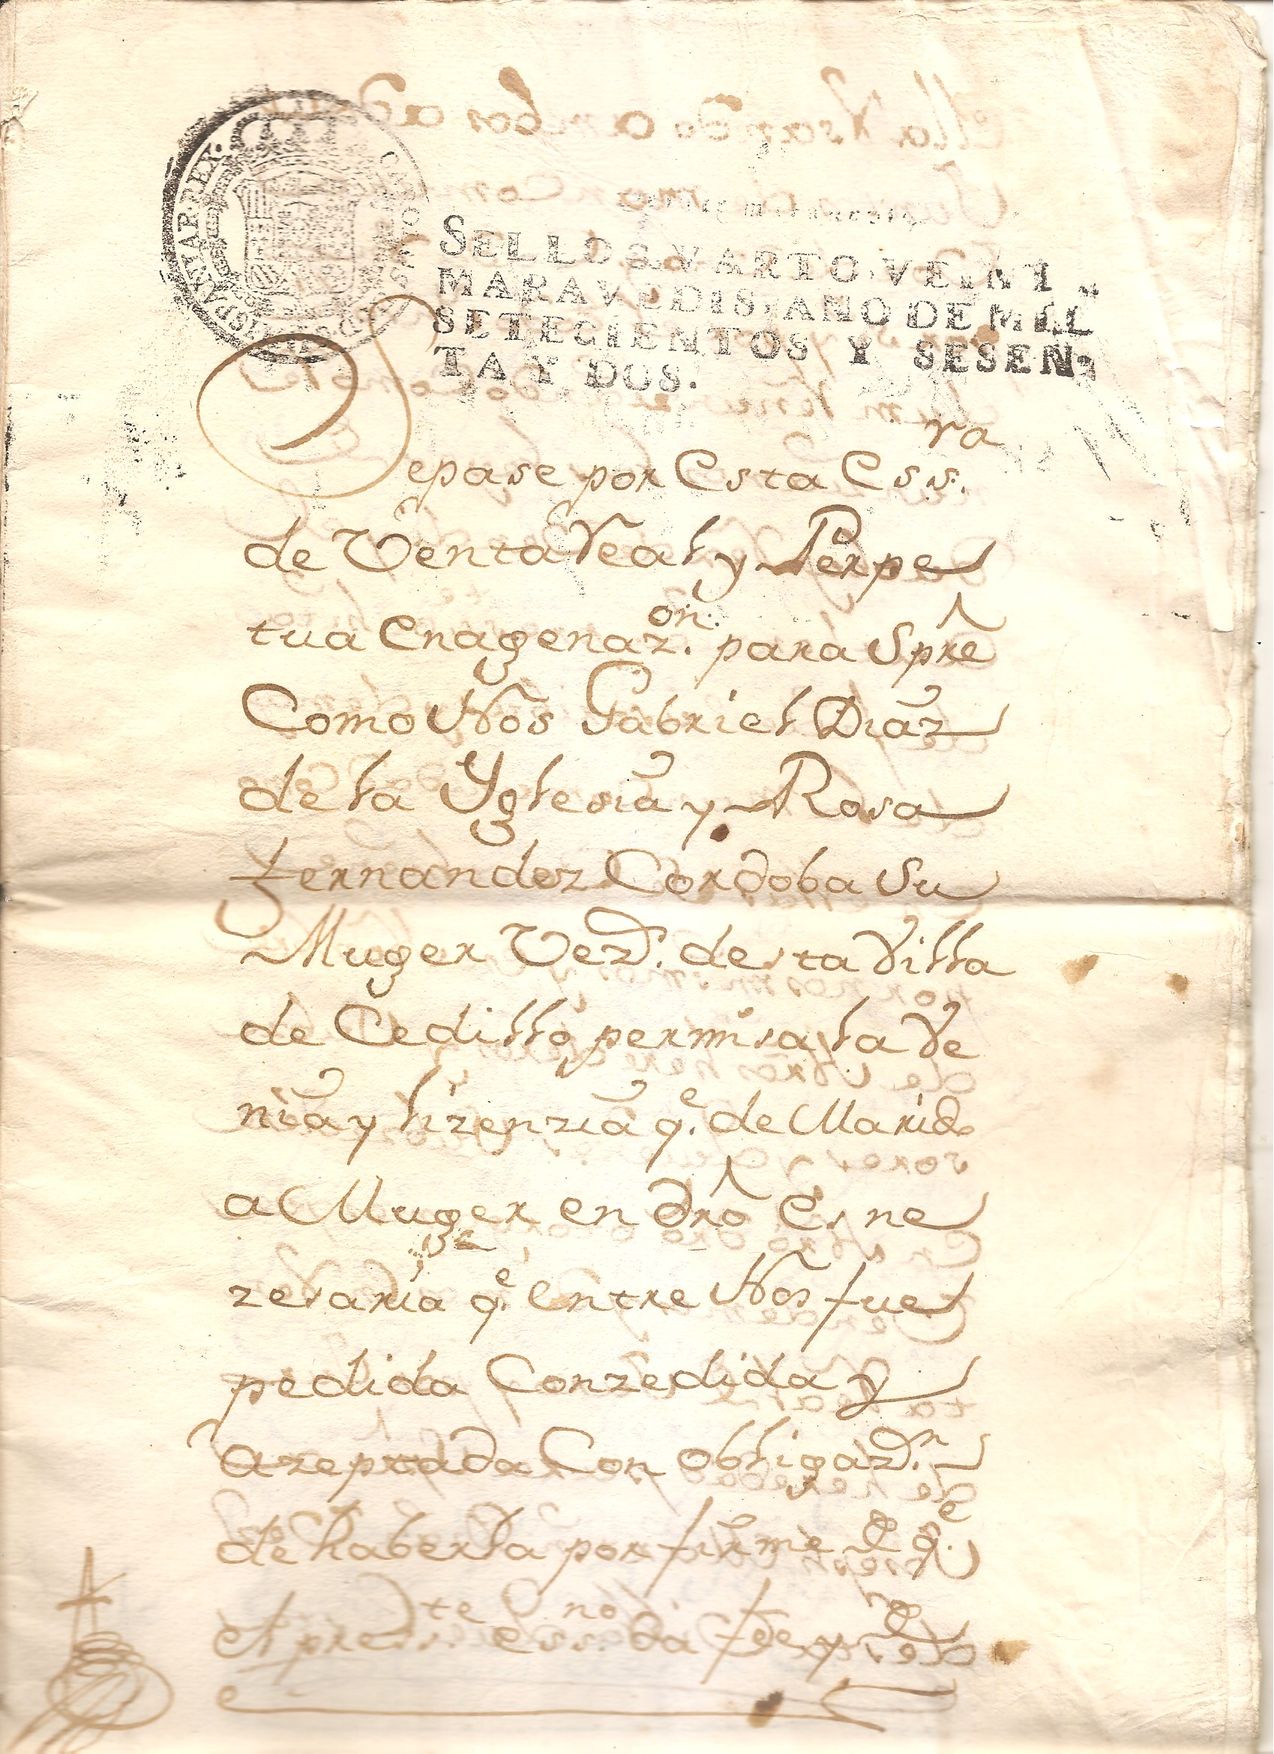 HISPANIAR·REX·
SELLO QVARTO, VEINT
MARAVEDIS, AÑO DE MIL
SETECIENTOS Y SESEN
TA Y DOS.
Sepase por Esta Ess.ra
de Venta Real y Perpe
tua Enagenaz.on para Spre
Como Nos Gabriel Diaz
de la Yglesia y Rosa
Fernandez Cordoba Su
Muger Vez.s de sta Villa
de Cedillo, permisa la Ve
nia y lizenzia q.e de Marido
a Muger en dro Es ne
zesaria q.e entre Nos fue
pedida Conzedida y
azeptada Con obligaz.n
de haberla por firme de q.e
el press.te ess.no da fee y de